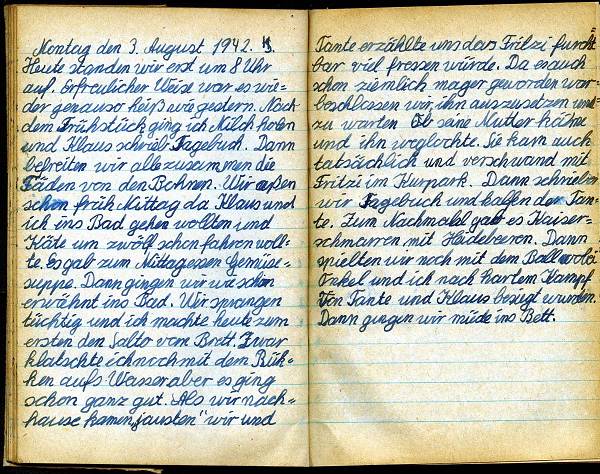 Montag den 3. August 1942. K.
Heute standen wir erst um 8 Uhr
auf. Erfreulicher Weise war es wie-
der genauso heiß wie gestern. Nach
dem Frühstück ging ich Milch holen
und Klaus schrieb Tagebuch. Dann
befreiten wir alle zusammen die
Fäden von den Bohnen. Wir aßen
schon früh Mittag da Klaus und
ich ins Bad gehen wollten und
Käte um zwölf schon fahren woll-
te. Es gab zum Mittagessen Gemüse-
suppe. Dann gingen wir wie schon
erwähnt ins Bad. Wir sprangen
tüchtig und ich machte heute zum
ersten den Salto vom Brett. Zwar
klatschte ich noch mit dem Rük-
ken aufs Wasser aber es ging
schon ganz gut. Als wir nach-
hause kamen „jausten" wir und
Tante erzählte uns das Fritzi furcht-
bar viel fressen würde. Da es auch
schon ziemlich mager geworden war
beschlossen wir, ihn auszusetzen und
zu warten Ob seine Mutter käme
und ihn weglochte. Sie kam auch
tatsächlich und verschwand mit
Fritzi im Kurpark. Dann schrieben
wir Tagebuch und halfen der Tan-
te. Zum Nachmald gab es Kaiser-
schmarren mit Heidebeeren. Dann
spielten wir noch mit dem Ball wobei
Onkel und ich nach hartem Kampf
von Tante und Klaus besigt wurden.
Dann gingen wir müde ins Bett.